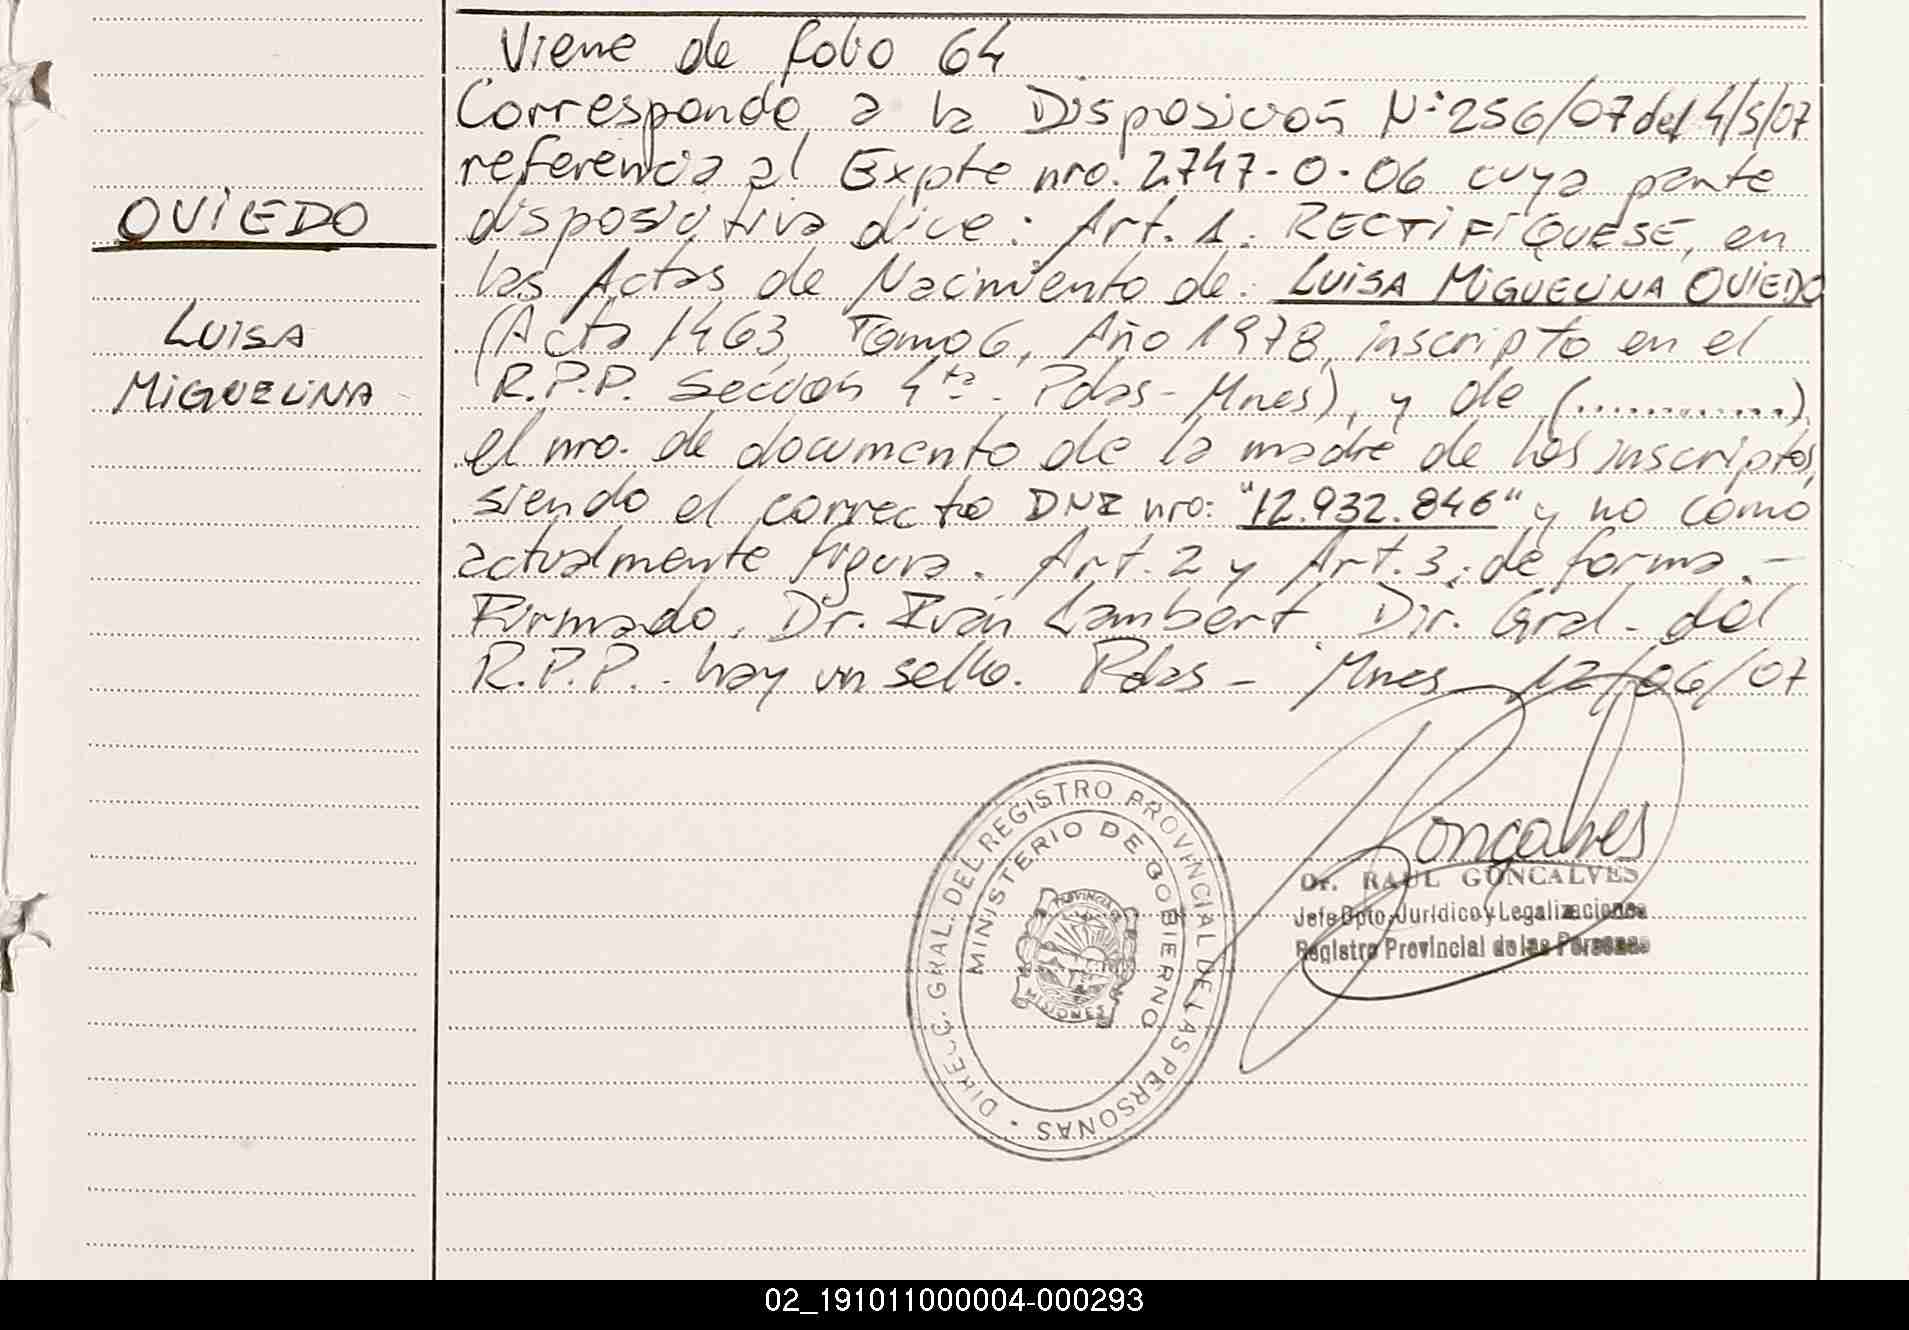 Viene de folio 64
Corresponde a la Disposición N° 256/07 del 4/5/07
referencia al Expte nro. 2747-O-06 cuya parte
OVIEDO
dispositiva dice: Art. 1: RECTIFÍQUESE, en
las Actas de Nacimiento de: LUISA MIGUELINA OVIEDO
LUISA
(Acta 1463, Tomo 6, Año 1978, inscripto en el
MIGUELINA
R.P.P. Sección 4ta - Pdas - Mnes), y de (............)
el nro. de documento de la madre de los inscriptos,
siendo el correcto DNI nro: "12.932.846" y no como
actualmente figura. Art. 2 y Art. 3: de forma.-
Firmado. Dr. Iván Lambert. Dir. Gral. del
R.P.P. - hay un sello. Pdas - Mnes 12/06/07
Goncalves
Dr. RAUL GONCALVES
Jefe Dpto. Jurídico y Legalizaciones
Registro Provincial de las Personas
DIRECC. GRAL. DEL REGISTRO PROVINCIAL DE LAS PERSONAS
MINISTERIO DE GOBIERNO
PROVINCIA DE
MISIONES
02_191011000004-000293